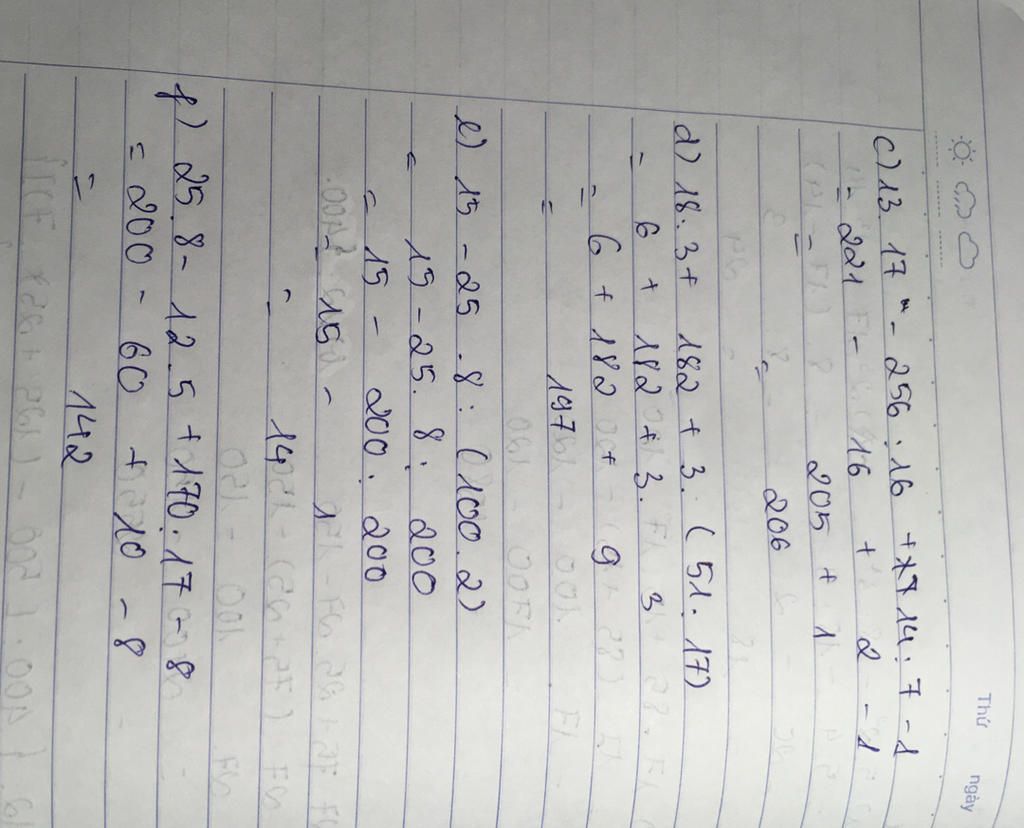 Thứ
ngày
c) 13 . 17 - 256 : 16 + 14 : 7 - 1
= 221 - 16 + 2 - 1
= 205 + 1
= 206
d) 18 : 3 + 182 + 3 . (51 : 17)
= 6 + 182 + 3 . 3
= 6 + 182 + 9
= 197
e) 15 - 25 . 8 : (100 . 2)
= 15 - 25 . 8 : 200
= 15 - 200 : 200
= 15 - 1
= 14
f) 25 . 8 - 12 . 5 + 170 : 17 - 8
= 200 - 60 + 10 - 8
= 142